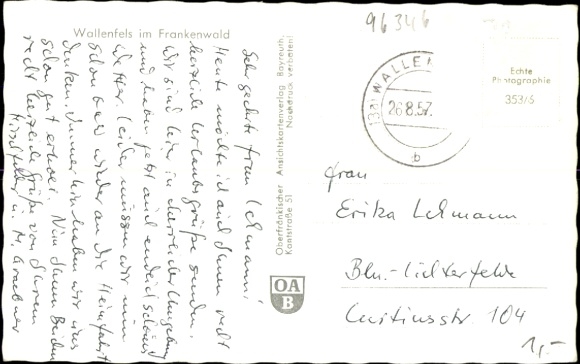 Wallenfels im Frankenwald
Sehr geehrte Frau Lehmann!
Heute möchte ich auch Ihnen recht
herzliche Urlaubsgrüße senden.
Wir sind hier in herrlicher Umgebung
und haben jetzt auch endlich schönes
Wetter. Leider müssen wir nun
schon bald wieder an die Heimfahrt
denken. Immerhin haben wir uns
schon gut erholt. Nun Ihnen Beiden
recht herzliche Grüße von Ihrem
u. M.
Oberfränkischer Ansichtskartenverlag Bayreuth,
Kantstraße 51 Nachdruck verboten!
OA
B
96346
(13a) WALLEN
26.8.57.
b
Echte
Photographie
353/5
Frau
Erika Lehmann
Bln.-Lichterfelde
Curtiusstr. 104
1,-